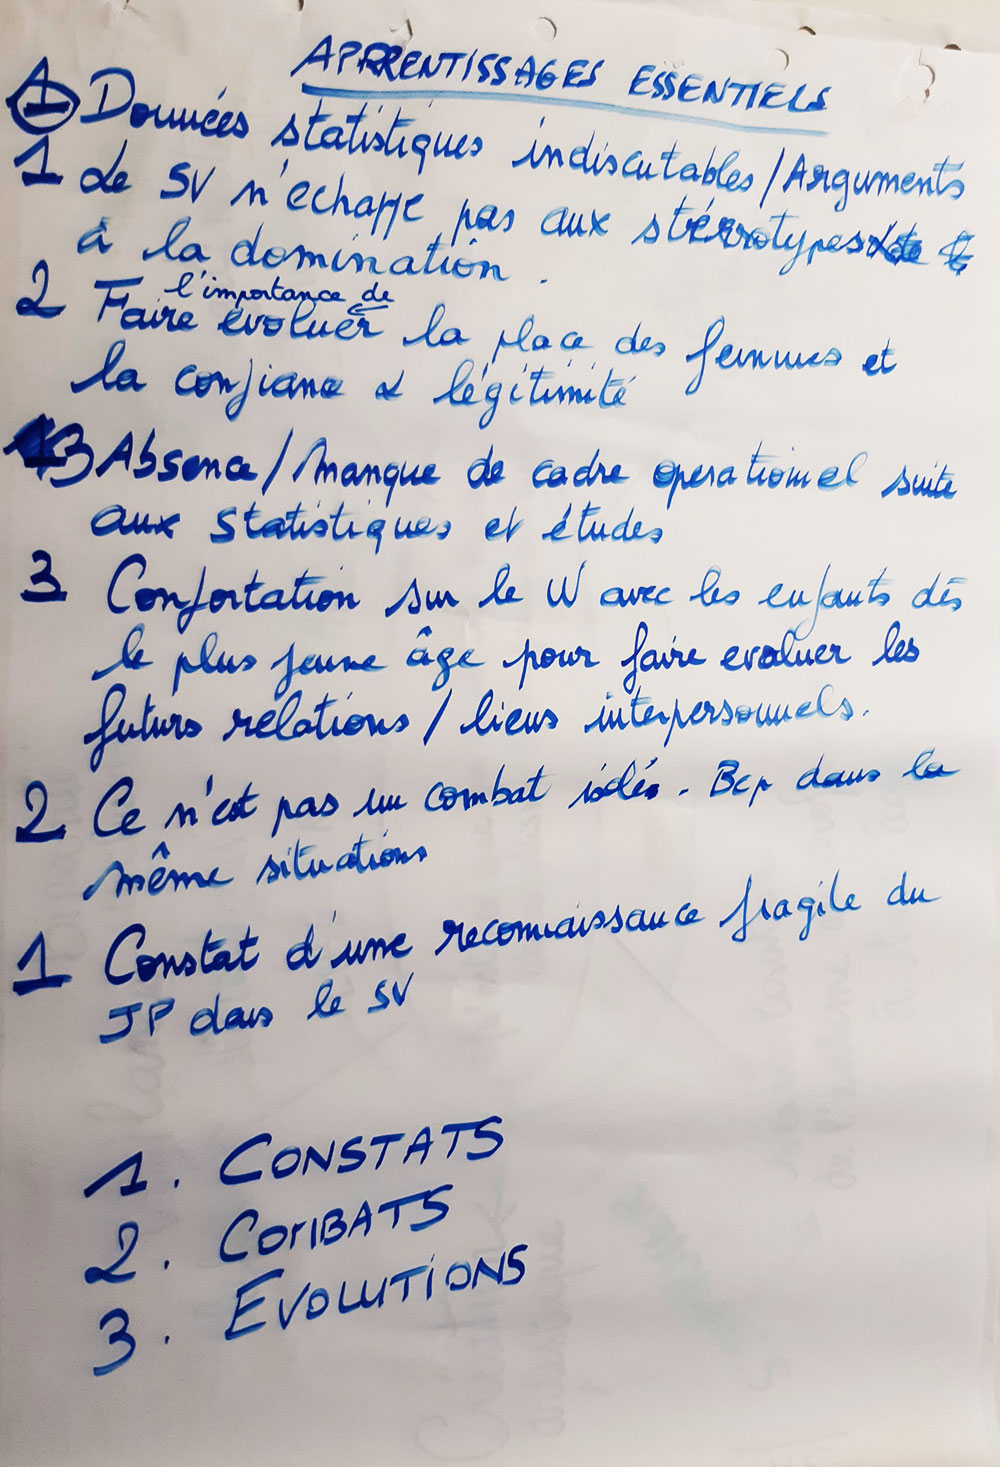 APPRENTISSAGES ESSENTIELS
1 Données statistiques indiscutables / Arguments
1 Le SV n'échappe pas aux stéréotypes
à la domination.
l'importance de
2 Faire évoluer la place des femmes et
la confiance & légitimité
3 Absence / manque de cadre operationnel suite
aux statistiques et études
3 Confortation sur le W avec les enfants dès
le plus jeune âge pour faire evoluer les
futurs relations / liens interpersonnels.
2 Ce n'est pas un combat isolés. Bcp dans la
même situations
1 Constat d'une reconnaissance fragile du
JP dans le SV
1. CONSTATS
2. COMBATS
3. EVOLUTIONS